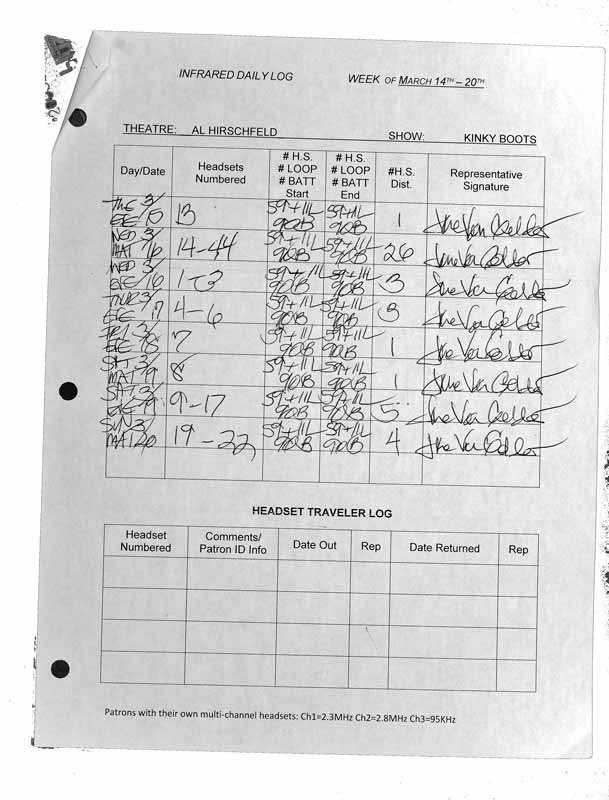 INFRARED DAILY LOG WEEK OF MARCH 14TH – 20TH
THEATRE: AL HIRSCHFELD SHOW: KINKY BOOTS
Day/Date Headsets Numbered # H.S. # LOOP # BATT Start # H.S. # LOOP # BATT End #H.S. Dist. Representative Signature
TUE 3/ EVE 15 13 59+11L 90B 59+11L 90B 1
WED 3/ MAT 16 14-44 59+11L 90B 59+11L 90B 26
WED 3/ EVE 16 1-3 59+11L 90B 59+11L 90B 3
THUR 3/ EVE 17 4-6 59+11L 90B 59+11L 90B 3
FRI 3/ EVE 18 7 59+11L 90B 59+11L 90B 1
SAT 3/ MAT 19 8 59+11L 90B 59+11L 90B 1
SAT 3/ EVE 19 9-17 59+11L 90B 59+11L 90B 5
SUN 3/ MAT 20 19-22 59+11L 90B 59+11L 90B 4
HEADSET TRAVELER LOG
Headset Numbered Comments/ Patron ID Info Date Out Rep Date Returned Rep
Patrons with their own multi-channel headsets: Ch1=2.3MHz Ch2=2.8MHz Ch3=95KHz